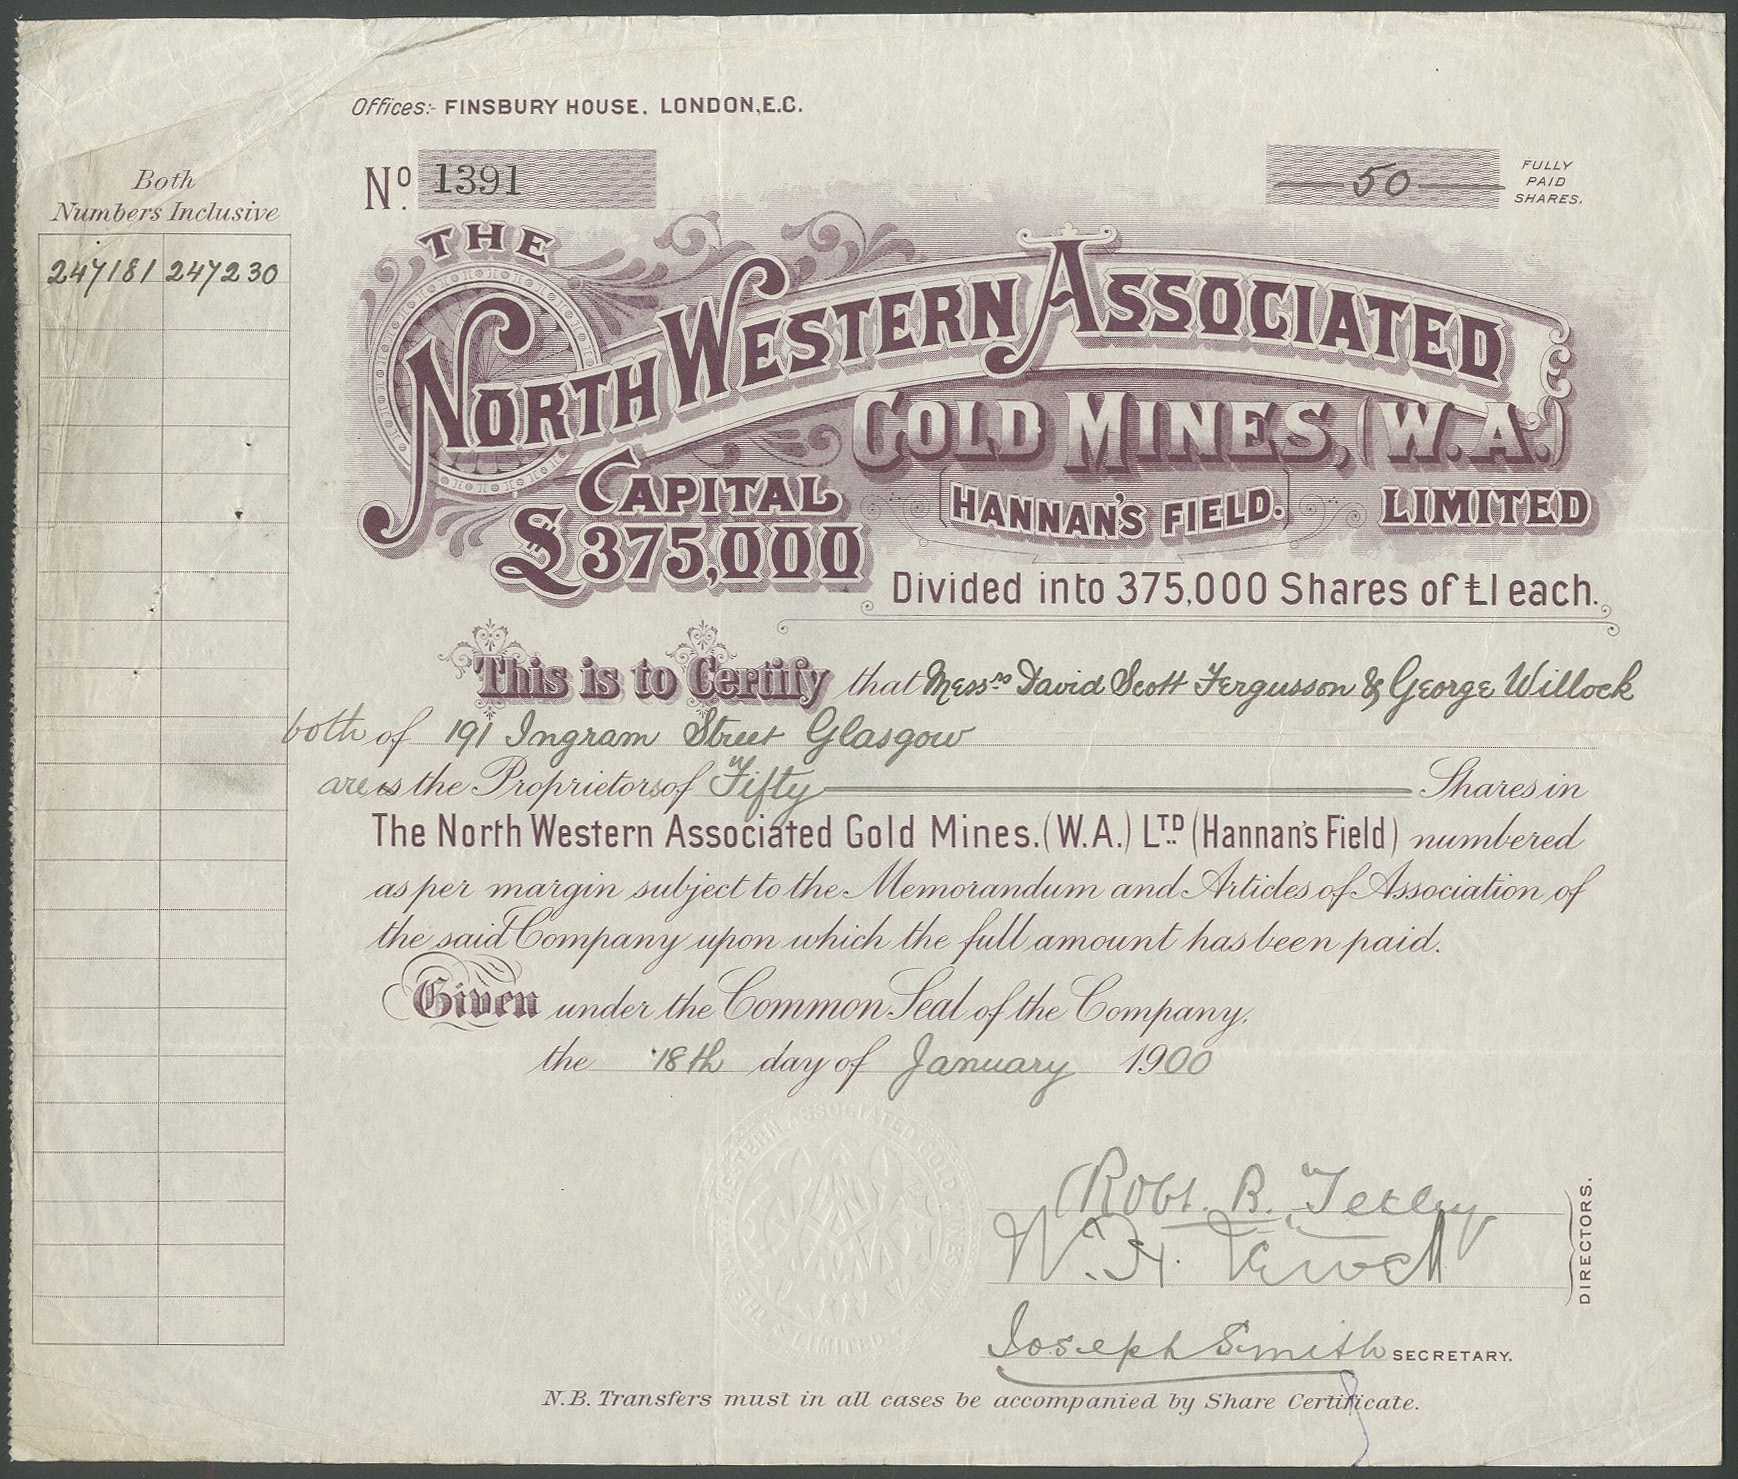 Offices:- FINSBURY HOUSE, LONDON, E.C.
Both
Numbers Inclusive
247181 247230
No. 1391
50
FULLY
PAID
SHARES.
THE
NORTH WESTERN ASSOCIATED
GOLD MINES, (W.A.)
CAPITAL
£375,000
HANNAN'S FIELD.
LIMITED
Divided into 375,000 Shares of £1 each.
This is to Certify that Messrs David Scott Fergusson & George Willock
both of 191 Ingram Street Glasgow
are is the Proprietors of Fifty Shares in
The North Western Associated Gold Mines. (W.A.) LTD (Hannan's Field) numbered
as per margin subject to the Memorandum and Articles of Association of
the said Company upon which the full amount has been paid.
Given under the Common Seal of the Company.
the 18th day of January 1900
THE WESTERN ASSOCIATED GOLD MINES W.A. LIMITED
Robt. B. Tetley
W. H.
DIRECTORS.
Joseph Smith SECRETARY.
N.B. Transfers must in all cases be accompanied by Share Certificate.